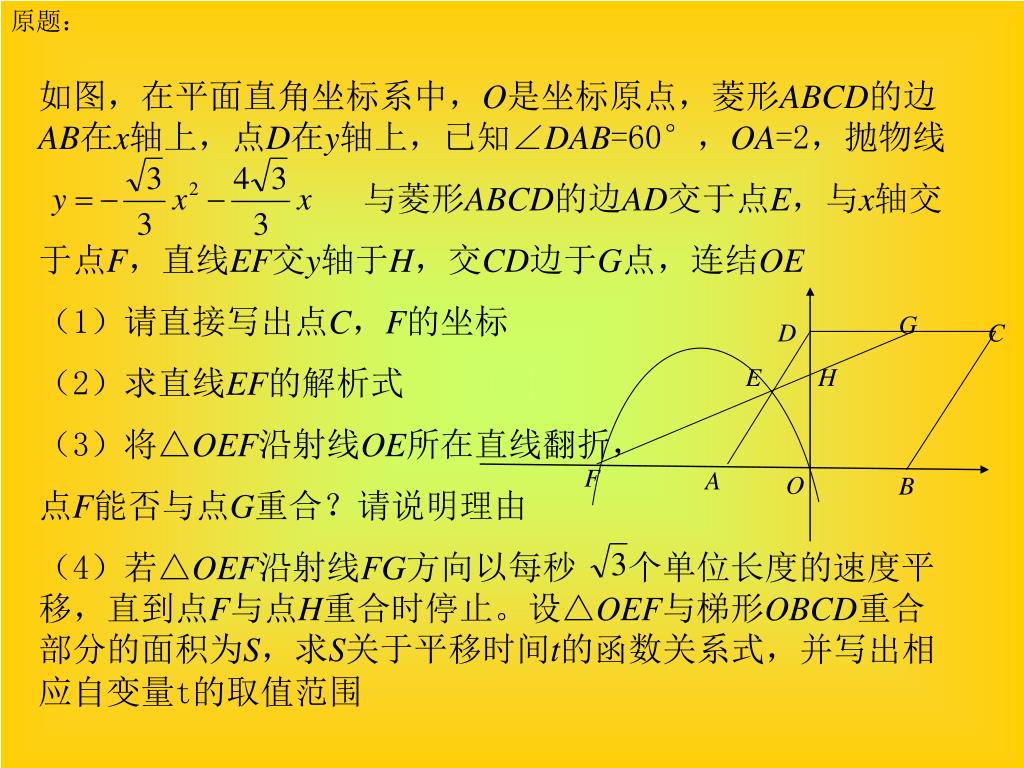 原题：
如图，在平面直角坐标系中，O是坐标原点，菱形ABCD的边
AB在x轴上，点D在y轴上，已知∠DAB=60°，OA=2，抛物线
y = −(√3/3)x² − (4√3/3)x 与菱形ABCD的边AD交于点E，与x轴交
于点F，直线EF交y轴于H，交CD边于G点，连结OE
（1）请直接写出点C，F的坐标
（2）求直线EF的解析式
（3）将△OEF沿射线OE所在直线翻折，
点F能否与点G重合？请说明理由
（4）若△OEF沿射线FG方向以每秒 √3个单位长度的速度平
移，直到点F与点H重合时停止。设△OEF与梯形OBCD重合
部分的面积为S，求S关于平移时间t的函数关系式，并写出相
应自变量t的取值范围
D G C
E H
F A O B